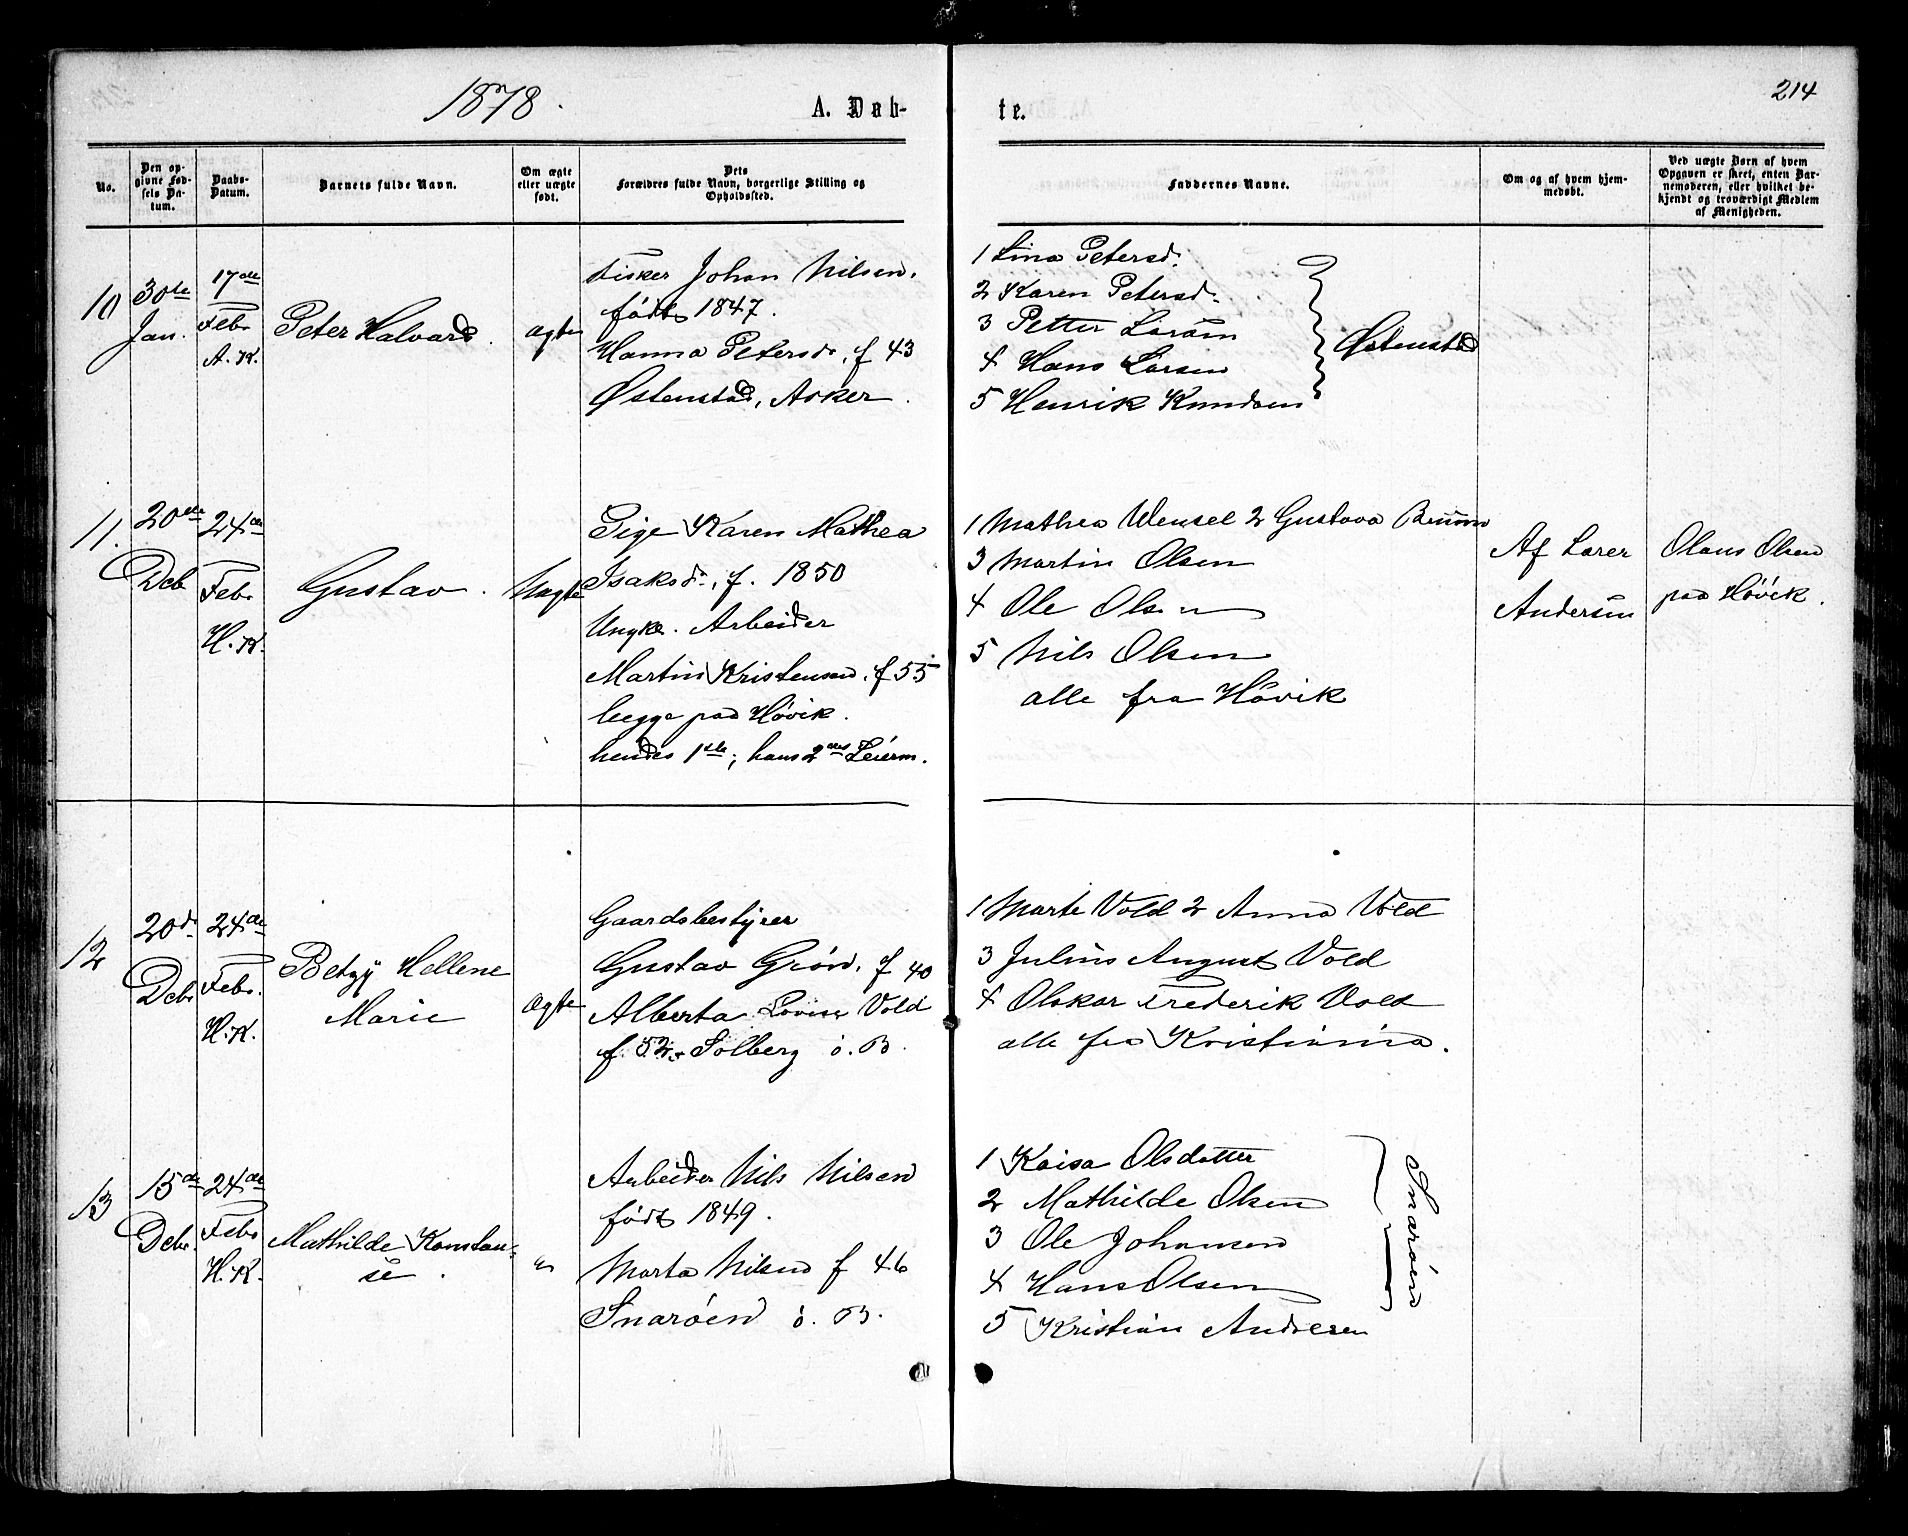 1878.
A. Døb-
te.
214
No.
Den op-
givne Fød-
sels Da-
tum.
Daabs-
Datum.
Barnets fulde Navn.
Om ægte
eller uægte
født.
Dets
Forældres fulde Navn, borgerlige Stilling og
Opholdssted.
Faddernes Navne.
Om og af hvem hjem-
medøbt.
Ved uægte Børn af hvem
Opgaven er skeet, enten Bar-
nemoderen, eller hvilket be-
kjendt og troværdigt Medlem
af Menigheden.
10
30te
Jan.
17de
Febr
A. K.
Peter Halvard.
ægte
Fisker Johan Nilsen.
født 1847.
Hanna Petersd., f 43
Østenstad, Asker.
1 Lina Petersd.
2 Karen Petersd.
3 Petter Larsen
4 Hans Larsen
5 Henrik Knudsen
Østenstad
11.
20de
Deb
24de
Febr
H. K.
Gustav.
Uægte
Pige Karen Mathea
Isaksd., f. 1850
Ungk. Arbeider
Martin Kristensen, f 55
begge paa Høvik.
hendes 1ste; hans 2det Leierm.
1 Mathea Wensel 2 Gustava
3 Martin Olsen
4 Ole Olsen
5 Nils Olsen
alle fra Høvik
Af Larer
Andersen
Olaus Olsen
paa Høvik.
12
20de
Debr
24de
Febr.
H. K.
Betzy Hellene
Marie
ægte
Gaardsbestyrer
Gustav Grøn, f 40
Alberta Lovise Vold
f. 52, Solberg ö. B.
1 Marte Vold 2 Anna Vold
3 Julius August Vold
4 Olskar Frederik Vold
alle fra Kristiania.
13
15de
Debr.
24de
Febr
H. K.
Mathilde Konstan-
se.
"
Arbeider Nils Nilsen
født 1849.
Marta Nilsen f 46
Snarøen ö. B.
1 Kaisa Olsdatter
2 Mathilde Olsen
3 Ole Johansen
4 Hans Olsen
5 Kristian Andresen
Snarøen